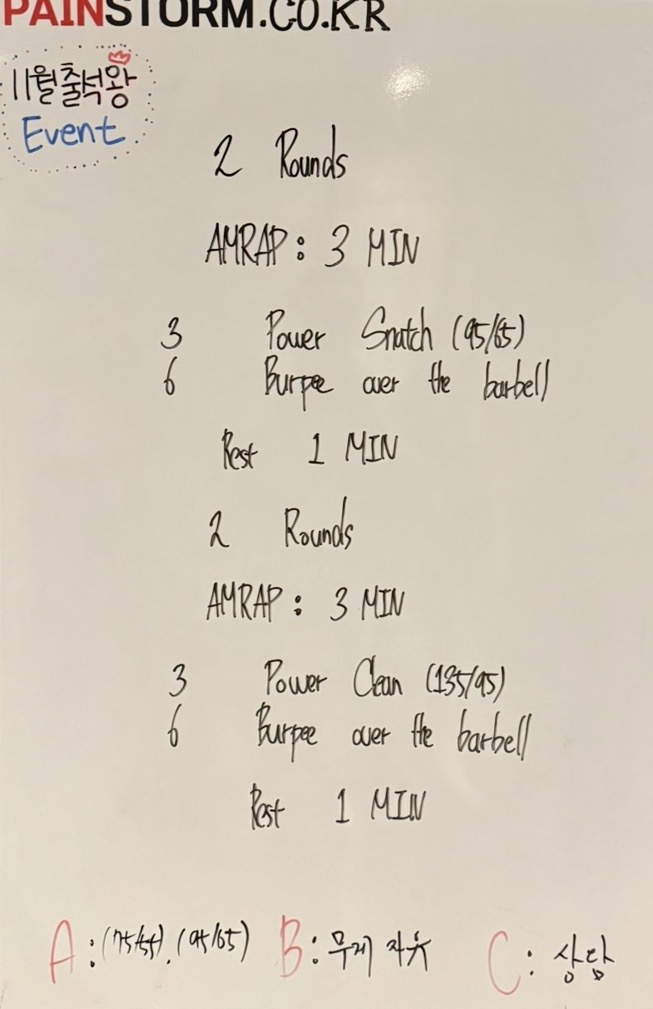 PAINSTORM.CO.KR
11월출석왕
Event
2 Rounds
AMRAP: 3 MIN
3 Power Snatch (95/65)
6 Burpee over the barbell
Rest 1 MIN
2 Rounds
AMRAP: 3 MIN
3 Power Clean (135/95)
6 Burpee over the barbell
Rest 1 MIN
A: (75/55). (95/65) B: 무게 자유 C: 상담